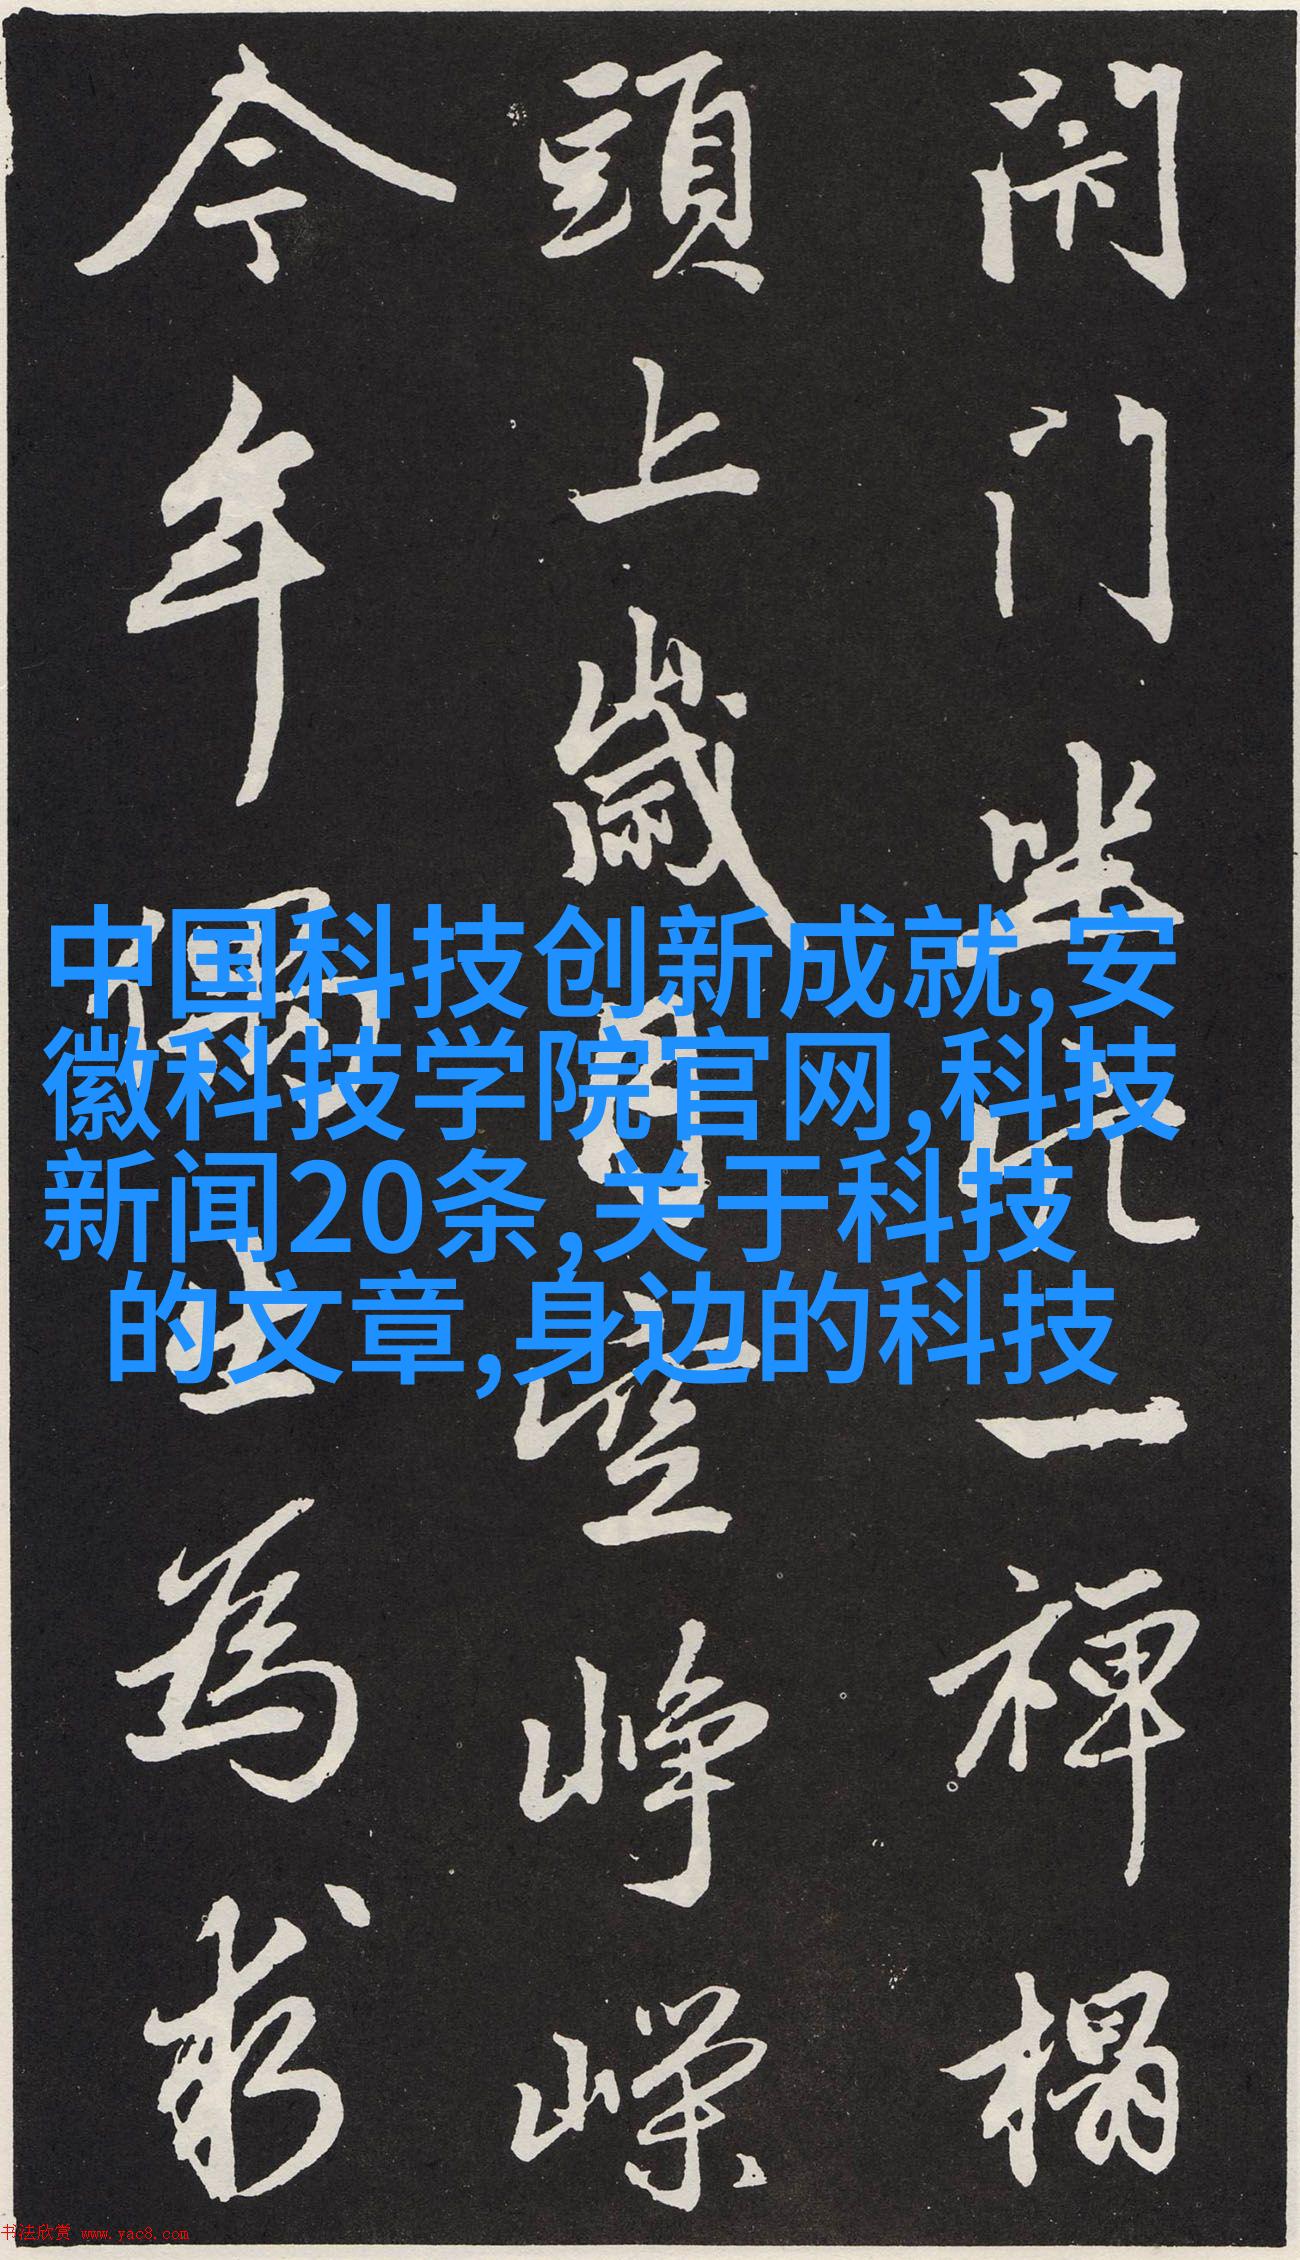 闭门坐穴一禅榻
頭上歲月空崢嶸
今年偶出為求
中国科技创新成就,安
徽科技学院官网,科技
新闻20条,关于科技
的文章,身边的科技
书法欣赏 www.yac8.com